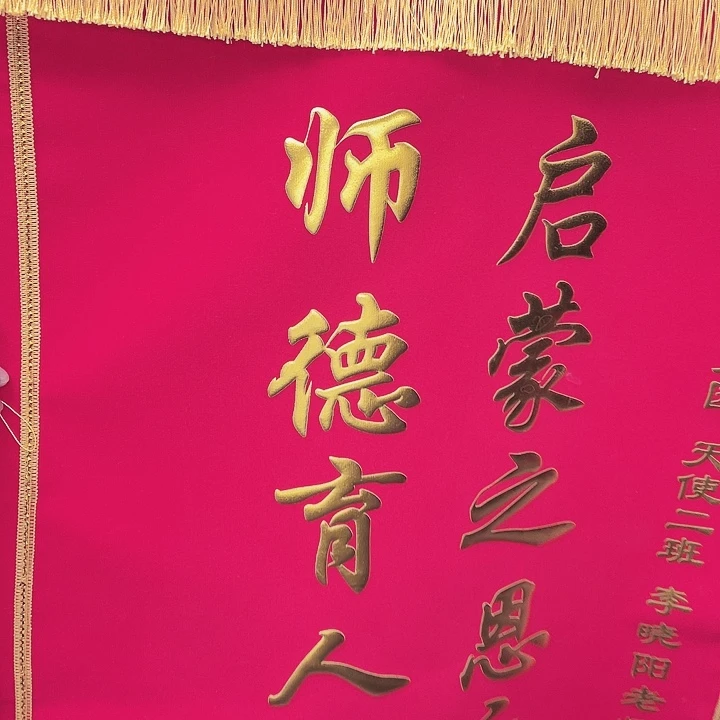 天使二班 李晓阳老
启蒙之恩
师德育人